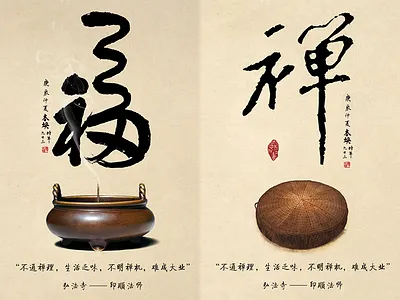 福
庚辰仲夏
本焕
时年
九十三
“不通禅理，生活乏味，不明禅机，难成大业”
弘法寺——印顺法师
禅
庚辰仲夏
本焕
时年
九十三
“不通禅理，生活乏味，不明禅机，难成大业”
弘法寺——印顺法师